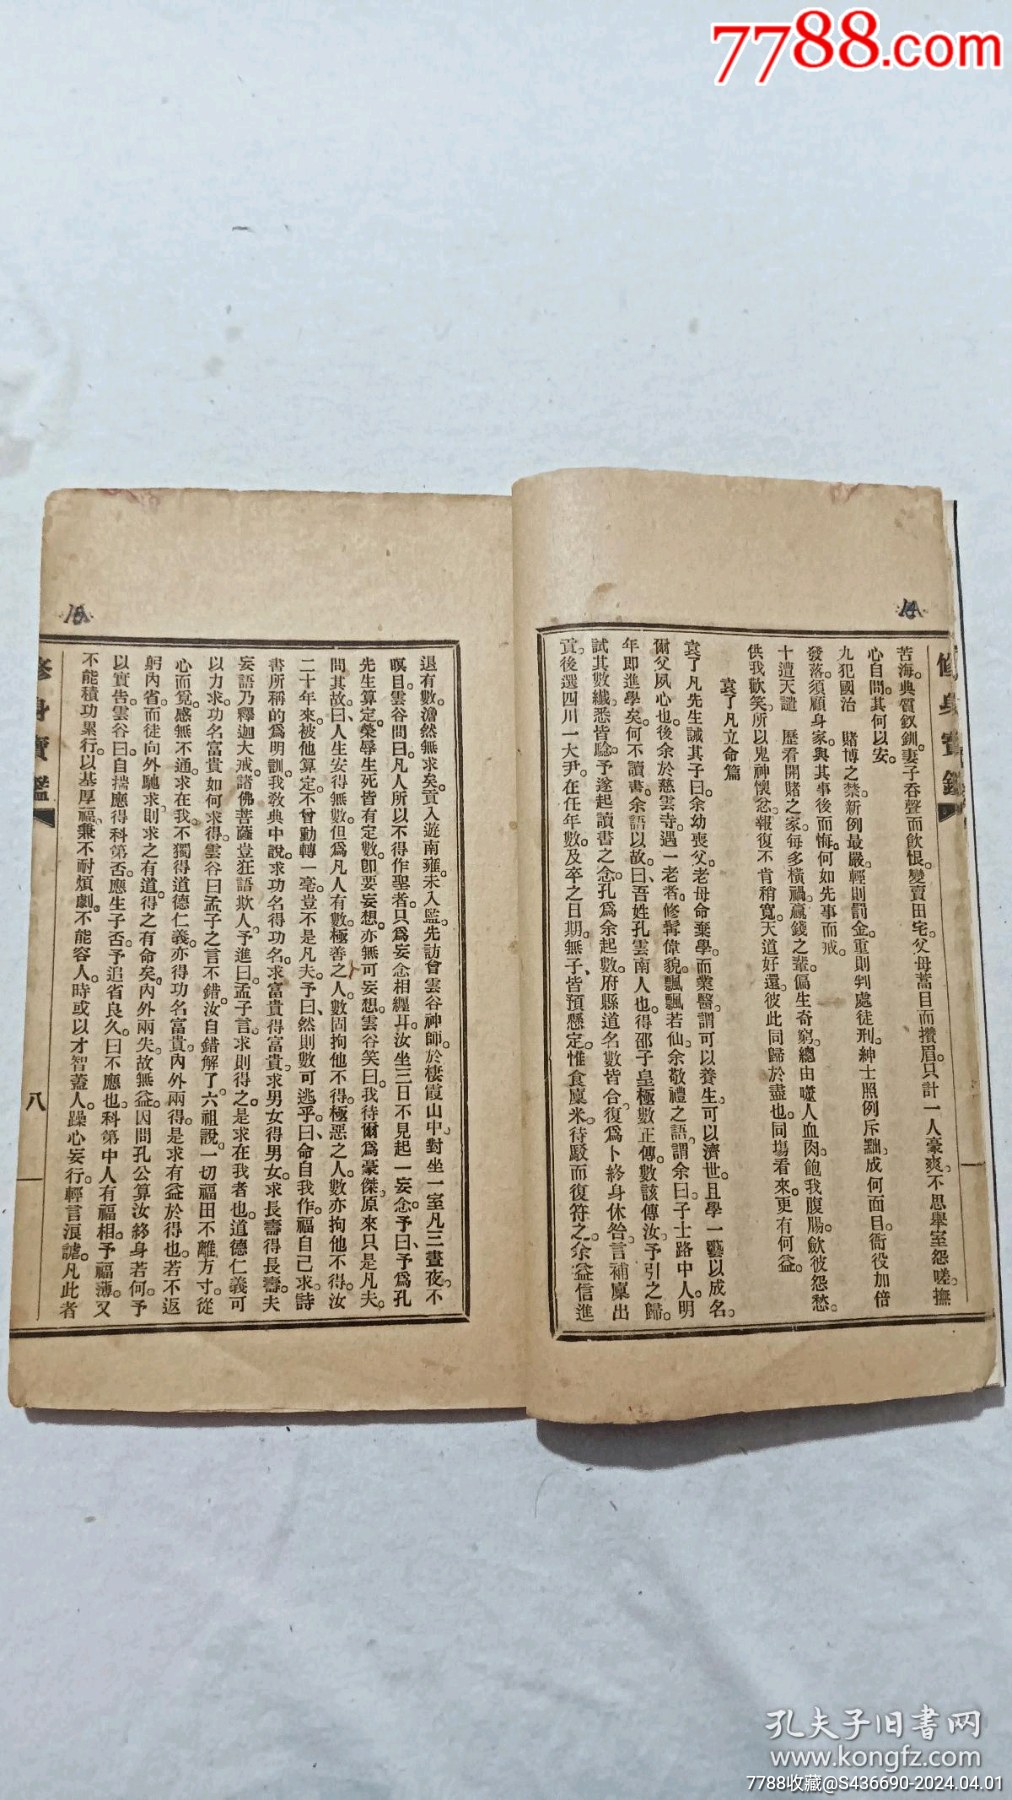 7788.com
14
修身寶鑑
苦海。典質釵釧。妻子吞聲而飲恨。變賣田宅。父母蒿目而攢眉。只計一人豪爽。不思舉室怨嗟。撫
心自問。其何以安。
九犯國治　賭博之禁。新例最嚴。輕則罰金。重則判處徒刑。紳士照例斥黜。成何面目。衙役加倍
發落。須顧身家。與其事後而悔。何如先事而戒。
十遭天譴　歷看開賭之家。每多橫禍。贏錢之輩。偏生奇窮。總由噬人血肉。飽我腹腸。飲彼怨愁。
供我歡笑。所以鬼神懷忿。報復不肯稍寬。天道好還。彼此同歸於盡也。同塲看來。更有何益。
袁了凡立命篇
袁了凡先生誡其子曰。余幼喪父。老母命棄學。而業醫。謂可以養生。可以濟世。且學一藝以成名。
爾父夙心也。後余於慈雲寺。遇一老者。修髯偉貌。飄飄若仙。余敬禮之。語謂余曰。子士路中人。明
年即進學矣。何不讀書。余語以故。曰。吾姓孔。雲南人也。得邵子皇極數正傳。數該傳汝。予引之歸。
試其數。纖悉皆驗。予遂起讀書之念。孔爲余起數。府縣道名數皆合。復爲卜終身休咎。言補廩出
貢。後選四川一大尹。在任年數。及卒之日期。無子。皆預懸定。惟食廩米。待駁而復符之。余益信進
15
退有數。澹然無求矣。貢入遊南雍。未入監。先訪曾雲谷神師。於棲霞山中。對坐一室。凡三晝夜。不
瞑目。雲谷問曰。凡人所以不得作聖者。只爲妄念相纏耳。汝坐三日。不見起一妄念。予曰。予爲孔
先生算定。榮辱生死。皆有定數。卽要妄想。亦無可妄想。雲谷笑曰。我待爾爲豪傑。原來只是凡夫。
問其故。曰。人生安得無數。但爲凡人有數。極善之人。數固拘他不得。極惡之人。數亦拘他不得。汝
二十年來。被他算定。不曾動轉一毫。豈不是凡夫。予曰。然則數可逃乎。曰。命自我作。福自己求。詩
書所稱。的爲明訓。我敎典中說。求功名得功名。求富貴得富貴。求男女得男女。求長壽得長壽。夫
妄語乃釋迦大戒。諸佛菩薩。豈狂語欺人。予進曰。孟子言。求則得之。是求在我者也。道德仁義。可
以力求。功名富貴。如何求得。雲谷曰。孟子之言不錯。汝自錯解了。六祖說。一切福田。不離方寸。從
心而覓。感無不通。求在我。不獨得道德仁義。亦得功名富貴。內外兩得。是求有益於得也。若不返
躬內省。而徒向外馳求。則求之有道。得之有命矣。內外兩失。故無益。因問孔公算汝終身若何。予
以實告。雲谷曰。自揣應得科第否。應生子否。予追省良久。曰。不應也。科第中人有福相。予福薄。又
不能積功累行。以基厚福。兼不耐煩劇。不能容人。時或以才智蓋人。躁心妄行。輕言浪謔。凡此者
修身寶鑑
八
孔夫子旧書网
www.kongfz.com
7788收藏@S436690-2024.04.01